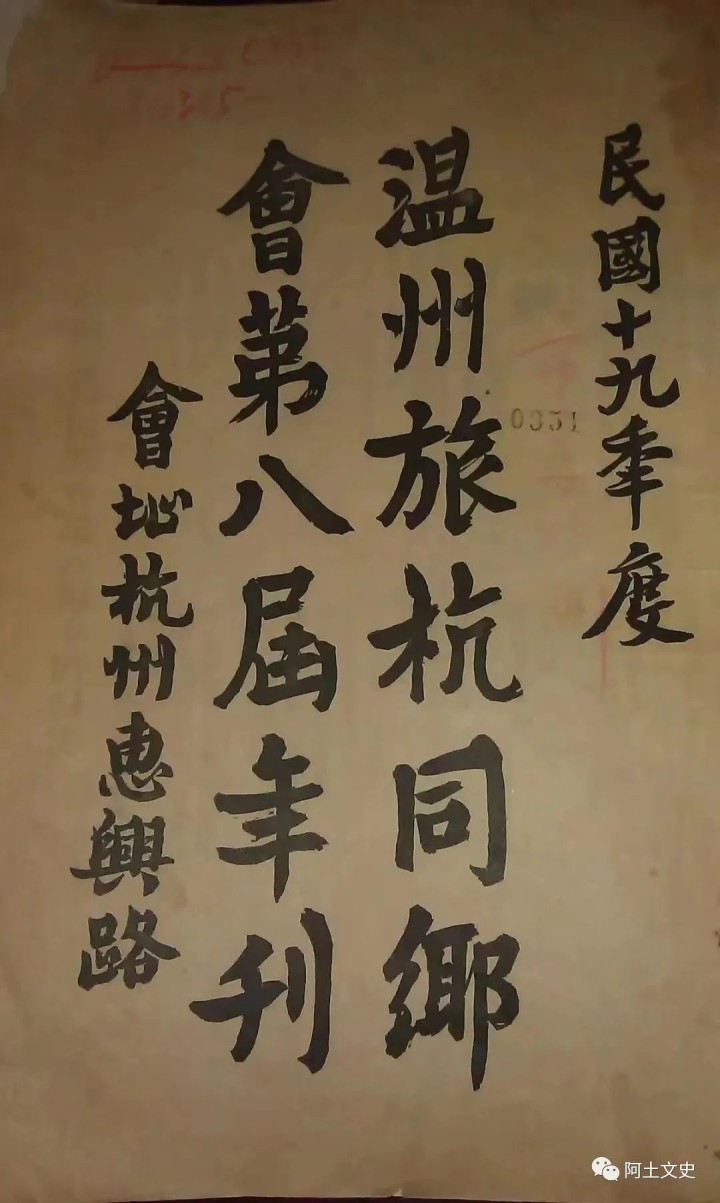 民國十九年度
温州旅杭同鄉
會第八届年刊
會址杭州惠興路
0351
305
阿土文史